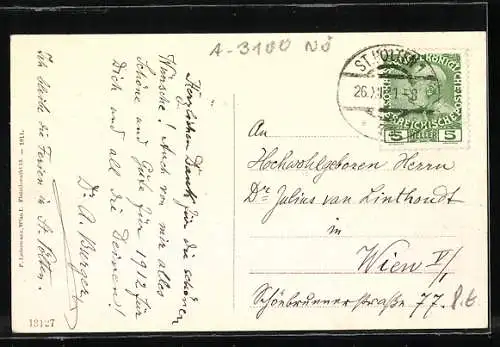 A-3100 NÖ
ST. PÖLTEN
26.XII.11-8
KAISERLICHE KÖNIGLICHE
ÖSTERREICHISCHE
5 HELLER 5
An
Hochwohlgeboren Herrn
Dr. Julius van Linthoudt
in
Wien V/1
Schönbrunnerstraße 77. P.t.
Herzlichen Dank für die schönen
Wünsche! Auch von mir alles
Schöne und Gute für 1912 für
Dich und all die Deinen!
Dr. A. Berger
Ich bleibe die Ferien in St. Pölten.
P. Ledermann, Wien I. Fleischmarkt 12. — 1911.
13127